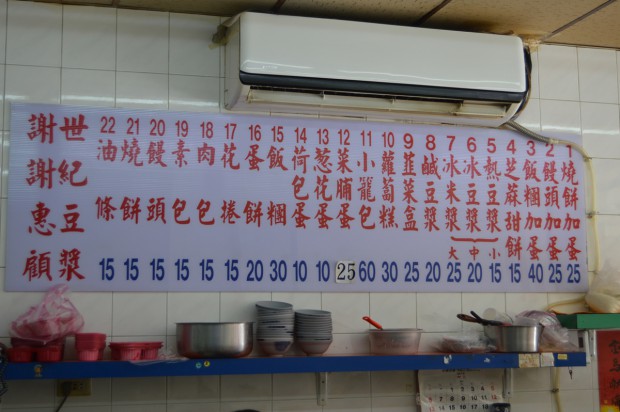 1 燒餅加蛋 25
2 饅頭加蛋 25
3 飯糰加蛋 40
4 芝蔴甜餅 15
5 熱豆漿 小 15
6 冰豆漿 中 20
7 冰米漿 大 25
8 鹹豆漿 20
9 韮菜盒 25
10 蘿萄糕 30
11 小籠包 60
12 菜脯蛋 25
13 葱花蛋 10
14 荷包蛋 10
15 飯糰 30
16 蛋餅 20
17 花捲 15
18 肉包 15
19 素包 15
20 饅頭 15
21 燒餅 15
22 油條 15
世紀豆漿
謝謝惠顧